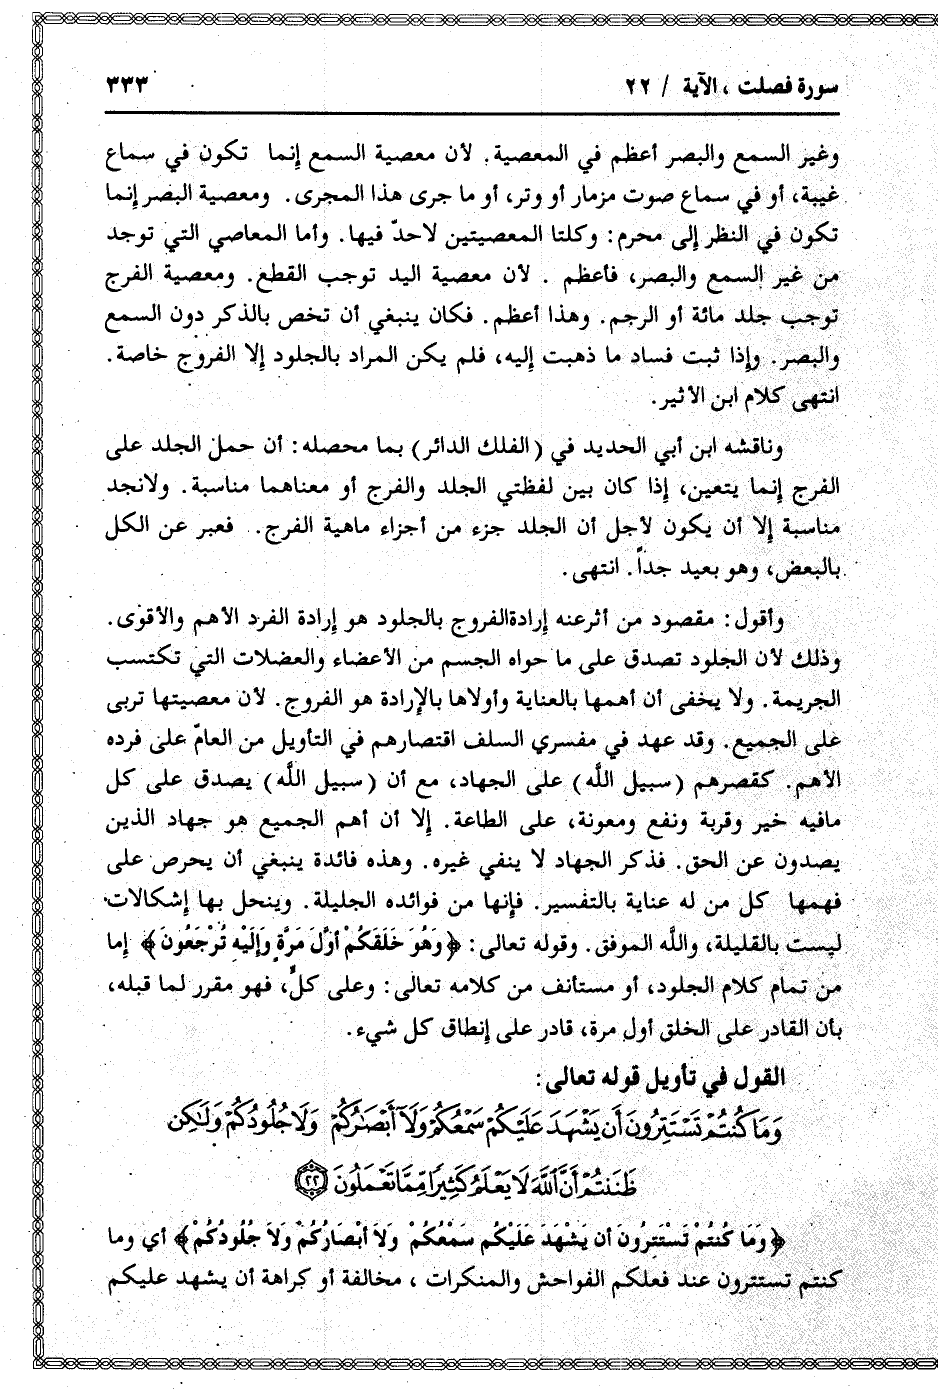 سورة فصلت ، الآية / ٢٢
٣٣٣
وغير السمع والبصر أعظم في المعصية. لأن معصية السمع إنما تكون في سماع
غيبة، أو في سماع صوت مزمار أو وتر، أو ما جرى هذا المجرى. ومعصية البصر إنما
تكون في النظر إلى محرم: وكلتا المعصيتين لاحدّ فيها. وأما المعاصي التي توجد
من غير السمع والبصر، فأعظم . لأن معصية اليد توجب القطع. ومعصية الفرج
توجب جلد مائة أو الرجم. وهذا أعظم. فكان ينبغي أن تخص بالذكر دون السمع
والبصر. وإذا ثبت فساد ما ذهبت إليه، فلم يكن المراد بالجلود إلا الفروج خاصة.
انتهى كلام ابن الأثير.
وناقشه ابن أبي الحديد في (الفلك الدائر) بما محصله: أن حمل الجلد على
الفرج إنما يتعين، إذا كان بين لفظتي الجلد والفرج أو معناهما مناسبة. ولانجد
مناسبة إلا أن يكون لأجل أن الجلد جزء من أجزاء ماهية الفرج. فعبر عن الكل
بالبعض، وهو بعيد جداً. انتهى.
وأقول: مقصود من أثرعنه إرادةالفروج بالجلود هو إرادة الفرد الأهم والأقوى.
وذلك لأن الجلود تصدق على ما حواه الجسم من الأعضاء والعضلات التي تكتسب
الجريمة. ولا يخفى أن أهمها بالعناية وأولاها بالإرادة هو الفروج. لأن معصيتها تربى
على الجميع. وقد عهد في مفسري السلف اقتصارهم في التأويل من العامّ على فرده
الأهم. كقصرهم (سبيل اللَّه) على الجهاد، مع أن (سبيل اللَّه) يصدق على كل
مافيه خير وقربة ونفع ومعونة، على الطاعة. إلا أن أهم الجميع هو جهاد الذين
يصدون عن الحق. فذكر الجهاد لا ينفي غيره. وهذه فائدة ينبغي أن يحرص على
فهمها كل من له عناية بالتفسير. فإنها من فوائده الجليلة. وينحل بها إشكالات
ليست بالقليلة، واللَّه الموفق. وقوله تعالى: ﴿وَهُوَ خَلَقَكُمْ أوَّلَ مَرَّةٍ وَإلَيْهِ تُرْجَعُونَ﴾ إما
من تمام كلام الجلود، أو مستأنف من كلامه تعالى: وعلى كلٍّ، فهو مقرر لما قبله،
بأن القادر على الخلق أول مرة، قادر على إنطاق كل شيء.
القول في تأويل قوله تعالى:
وَمَا كُنتُمْ تَسْتَتِرُونَ أَن يَشْهَدَ عَلَيْكُمْ سَمْعُكُمْ وَلَآ أَبْصَٰرُكُمْ وَلَا جُلُودُكُمْ وَلَٰكِن
ظَنَنتُمْ أَنَّ ٱللَّهَ لَا يَعْلَمُ كَثِيرًا مِّمَّا تَعْمَلُونَ ٢٢
﴿وَمَا كُنتُمْ تَسْتَتِرُونَ أن يَشْهَدَ عَلَيْكُم سَمْعُكُمْ وَلاَ أبْصَارُكُمْ وَلاَ جُلُودُكُمْ﴾ أي وما
كنتم تستترون عند فعلكم الفواحش والمنكرات ، مخالفة أو كراهة أن يشهد عليكم